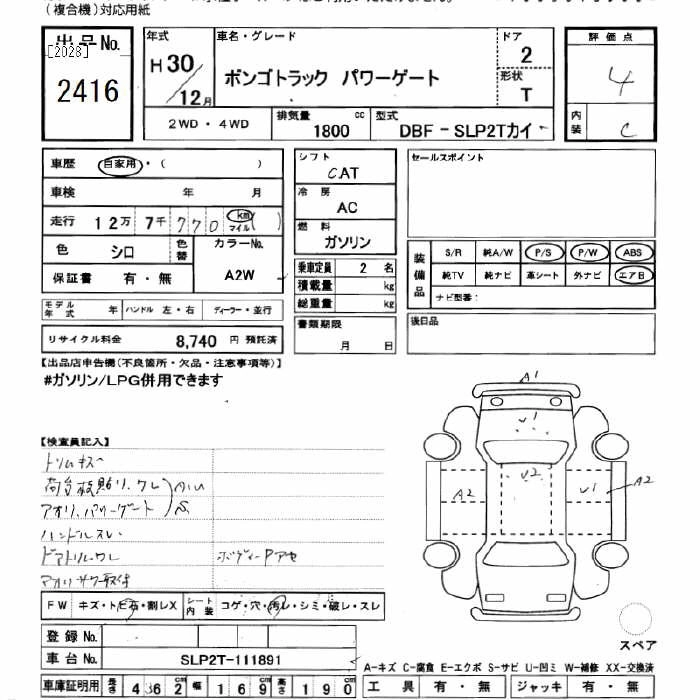 (複合機)対応用紙
出品No. [2028] 2416
年式 H30/12月
車名・グレード
ボンゴトラック パワーゲート
ドア 2
形状 T
評価点 4
内装 C
2WD・4WD
排気量 1800 cc
型式 DBF-SLP2Tカイ
車歴 自家用・( )
車検 年 月
走行 12万 7千 770 km マイル ( )
色 シロ 色替
カラーNo. A2W
保証書 有・無
モデル年式 年 ハンドル 左・右 ディーラー・並行
リサイクル料金 8,740 円 預託済
シフト CAT
冷房 AC
燃料 ガソリン
乗車定員 2 名
積載量 kg
総重量 kg
書類期限 月 日
セールスポイント
装備品 S/R 純A/W P/S P/W ABS
純TV 純ナビ 革シート 外ナビ エアB
ナビ型番:
後日品
【出品店申告欄(不良箇所・欠品・注意事項等)】
#ガソリン/LPG併用できます
【検査員記入】
トリムキズ
荷台板貼り、ワレ
アオリ、パワーゲート
ハンドルスレ
ボディーPアセ
A1
V1
V2
A2
V1
A2
FW キズ・トビ石・割レX
シート内装 コゲ・穴・汚レ・シミ・破レ・スレ
登録No.
車台No. SLP2T-111891
車庫証明用 長さ 436 2 幅 169 高さ 190
スペア
A-キズ C-腐食 E-エクボ S-サビ U-凹ミ W-補修 XX-交換済
工具 有・無 ジャッキ 有・無